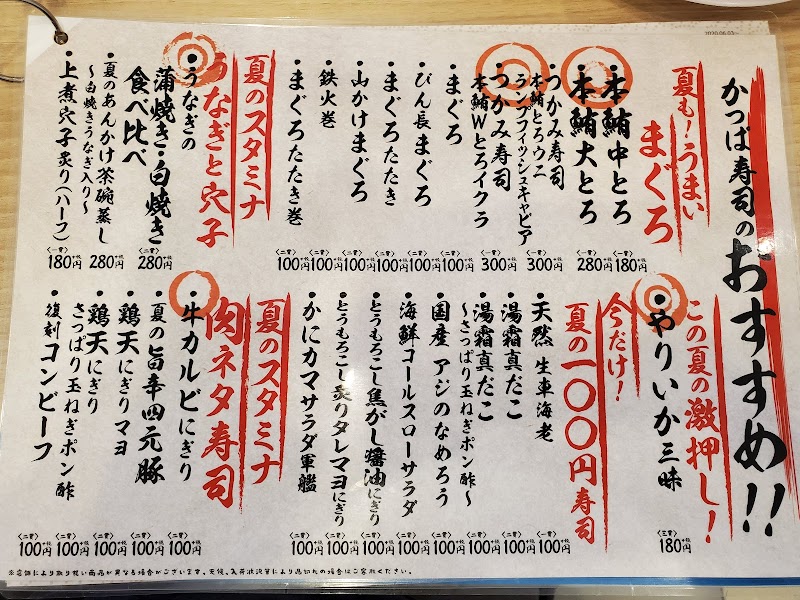 かっぱ寿司のおすすめ!!
夏も!うまい
まぐろ
・本鮪中とろ
〈一貫〉180円+税
・本鮪大とろ
〈一貫〉280円+税
・つかみ寿司
本鮪とろウニ
ランプフィッシュキャビア
〈一貫〉300円+税
・つかみ寿司
本鮪Wとろイクラ
〈一貫〉300円+税
・まぐろ
〈二貫〉100円+税
・びん長まぐろ
〈二貫〉100円+税
・まぐろたたき
〈二貫〉100円+税
・山かけまぐろ
〈二貫〉100円+税
・鉄火巻
100円+税
・まぐろたたき巻
100円+税
夏のスタミナ
うなぎと穴子
・うなぎの
蒲焼き・白焼き
食べ比べ
〈二貫〉280円+税
・夏のあんかけ茶碗蒸し
〜白焼きうなぎ入り〜
280円+税
・上煮穴子炙り(ハーフ)
〈一貫〉180円+税
この夏の激押し!
・やりいか三昧
〈三貫〉180円+税
今だけ!
夏の一〇〇円寿司
・天然 生車海老
〈一貫〉100円+税
・湯霜真だこ
〈二貫〉100円+税
・湯霜真だこ
〜さっぱり玉ねぎポン酢〜
〈二貫〉100円+税
・国産 アジのなめろう
〈二貫〉100円+税
・海鮮コールスローサラダ
〈二貫〉100円+税
・とうもろこし焦がし醤油にぎり
〈二貫〉100円+税
・とうもろこし炙りタレマヨにぎり
〈二貫〉100円+税
・かにカマサラダ軍艦
〈二貫〉100円+税
夏のスタミナ
肉ネタ寿司
・牛カルビにぎり
〈二貫〉100円+税
・夏の旨辛四元豚
〈二貫〉100円+税
・鶏天にぎりマヨ
〈二貫〉100円+税
・鶏天にぎり
さっぱり玉ねぎポン酢
〈二貫〉100円+税
・復刻コンビーフ
〈二貫〉100円+税
※店舗により取り扱い商品が異なる場合がございます。天候、入荷状況等により品切れの場合はご容赦ください。